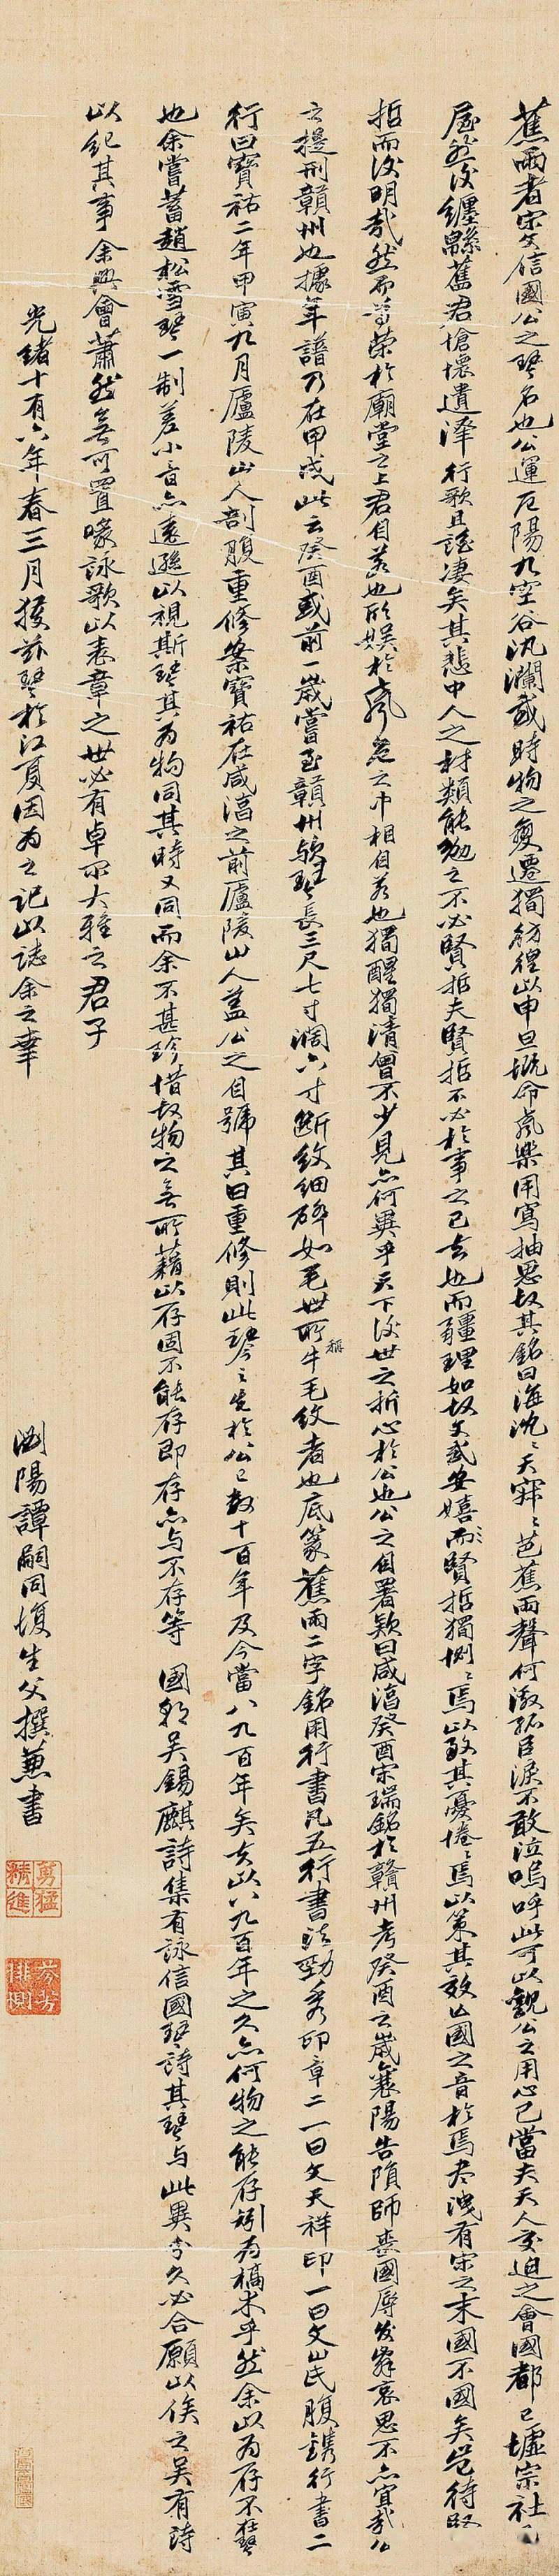 蕉雨者宋文信國公之琴名也公運厄陽九空谷汎瀾感時物之變遷獨彷徨以申旦慨命衆樂用寫抽思故其銘曰海沈沈天寐寐芭蕉雨聲何激孤臣淚不敢泣嗚呼此可以觀公之用心已當夫天人交迫之會國都已墟宗社已
屋然後纏緜舊君愴懷遺澤行歌且謡凄矣其悲中人之材類能勉之不必賢哲夫賢哲不必於事之已去也而疆理如故文武安嬉而賢哲獨惻惻焉以致其憂惓惓焉以策其效亡國之音於焉盡洩有宋之末國不國矣豈待
哲而後明哉然而尊榮於廟堂之上君自若也所娛於之中相自若也獨醒獨清曾不少見亦何異乎天下後世之折心於公也公之自署欵曰咸淳癸酉宋瑞銘於贛州考癸酉之歲襄陽告隕師喪國辱發哀思不亦宜哉公
之提刑贛州也據年譜乃在甲戌此云癸酉或前一歲嘗至贛州歟琴長三尺七寸濶六寸斷紋細碎如毛世所稱牛毛紋者也底篆蕉雨二字銘用行書凡五行書法勁秀印章二一曰文天祥印一曰文山氏腹鐫行書二
行曰寶祐二年甲寅九月廬陵山人剖腹重修案寶祐在咸淳之前廬陵山人蓋公之自號其曰重修則此琴之先於公已數十百年及今當八九百年矣夫以八九百年之久亦何物之能存矧為槁木乎然余以為存不在琴
也余嘗蓄趙松雪琴一制差小音亦遠遜以視斯琴其為物同其時又同而余不甚珍惜故物之無所藉以存固不能存即存亦与不存等 國朝吳錫麒詩集有詠信國琴詩其琴与此異分久必合願以俟之吳有詩
以紀其事余興會蕭然無可置喙詠歌以表章之世必有卓爾大雅之君子
光緒十有六年春三月獲茲琴於江夏因為之記以誌余之幸
瀏陽譚嗣同復生父撰蒹書
勇猛精進
芬芳悱惻